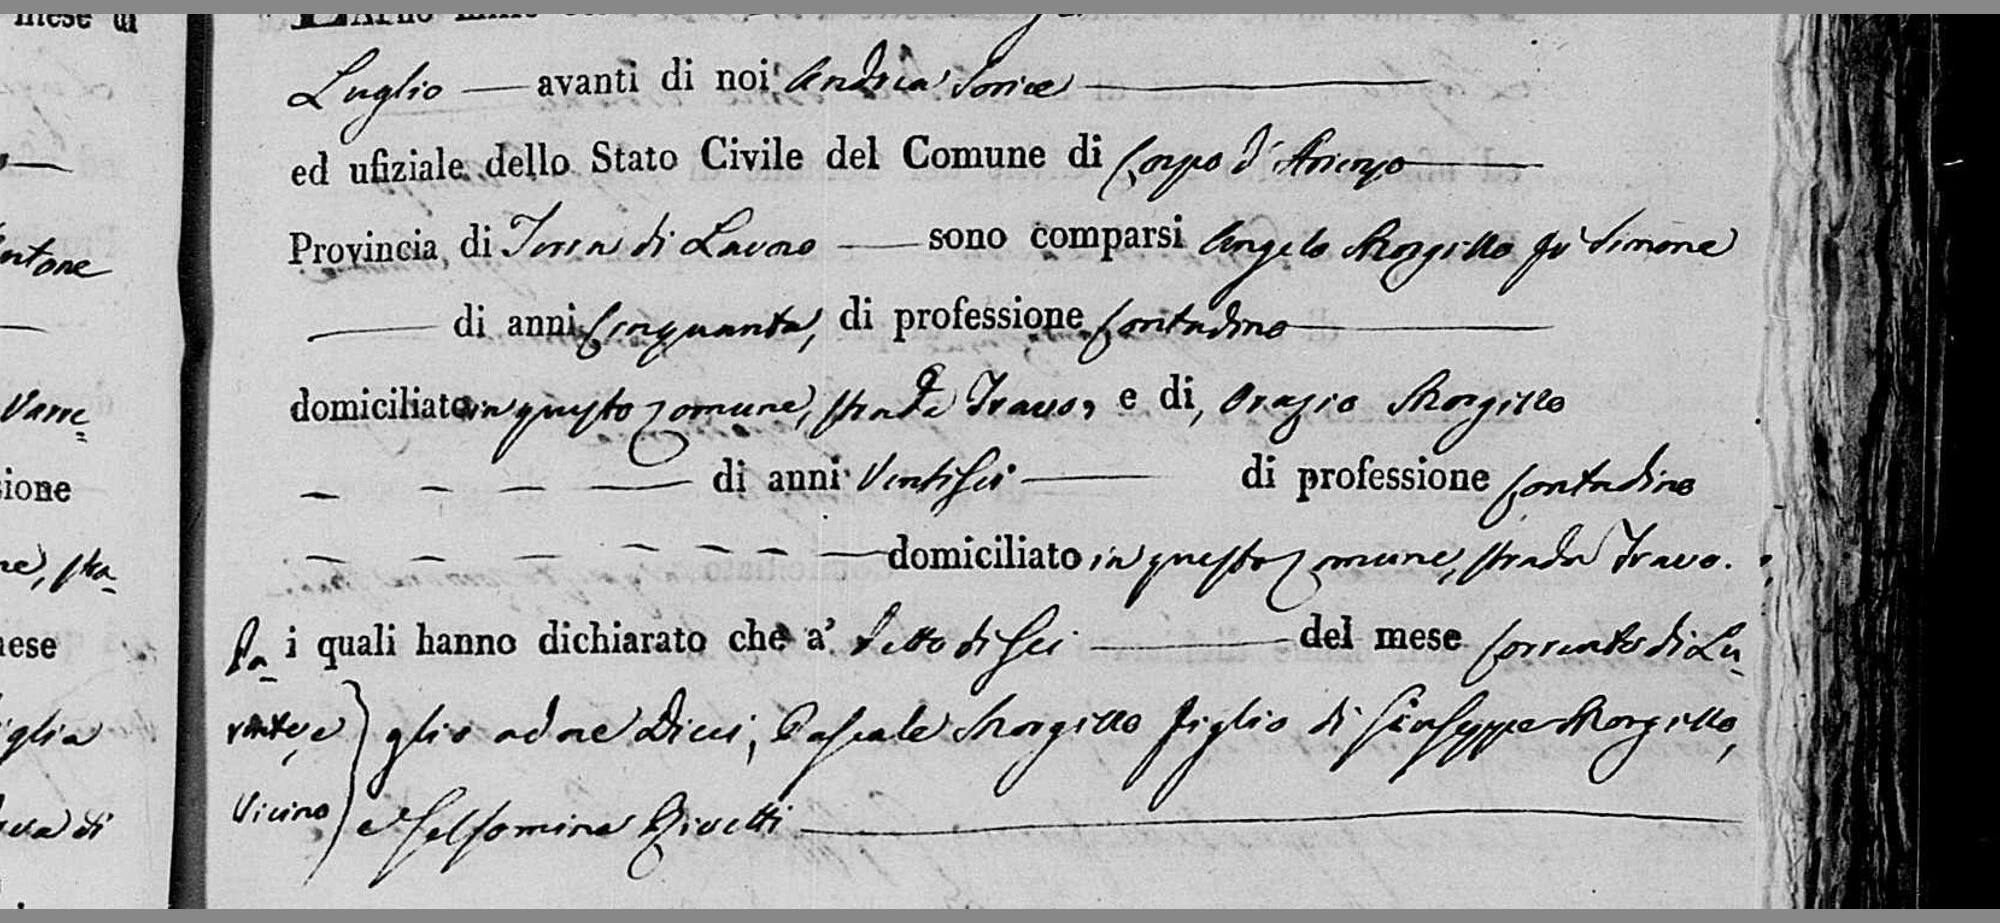 mese di
Luglio — avanti di noi Andrea Sorice
ed ufiziale dello Stato Civile del Comune di Corpo d'Arienzo
Provincia di Terra di Lavoro — sono comparsi Angelo Morgillo fu Simone
— di anni Cinquanta, di professione Contadino
domiciliato in questo Comune, strada Travo, e di, Orazio Morgillo
— — — — di anni Ventisei — di professione Contadino
— — — — — — — domiciliato in questo Comune, strada Travo.
Pa- i quali hanno dichiarato che a' detto di sei — del mese corrente di Lu-
rente, e glio ad ore Dieci, Pasquale Morgillo figlio di Giuseppe Morgillo,
Vicino e Gelsomina Rivetti
ntone
Varre=
sione
ne, stra-
mese
figlia
ava di